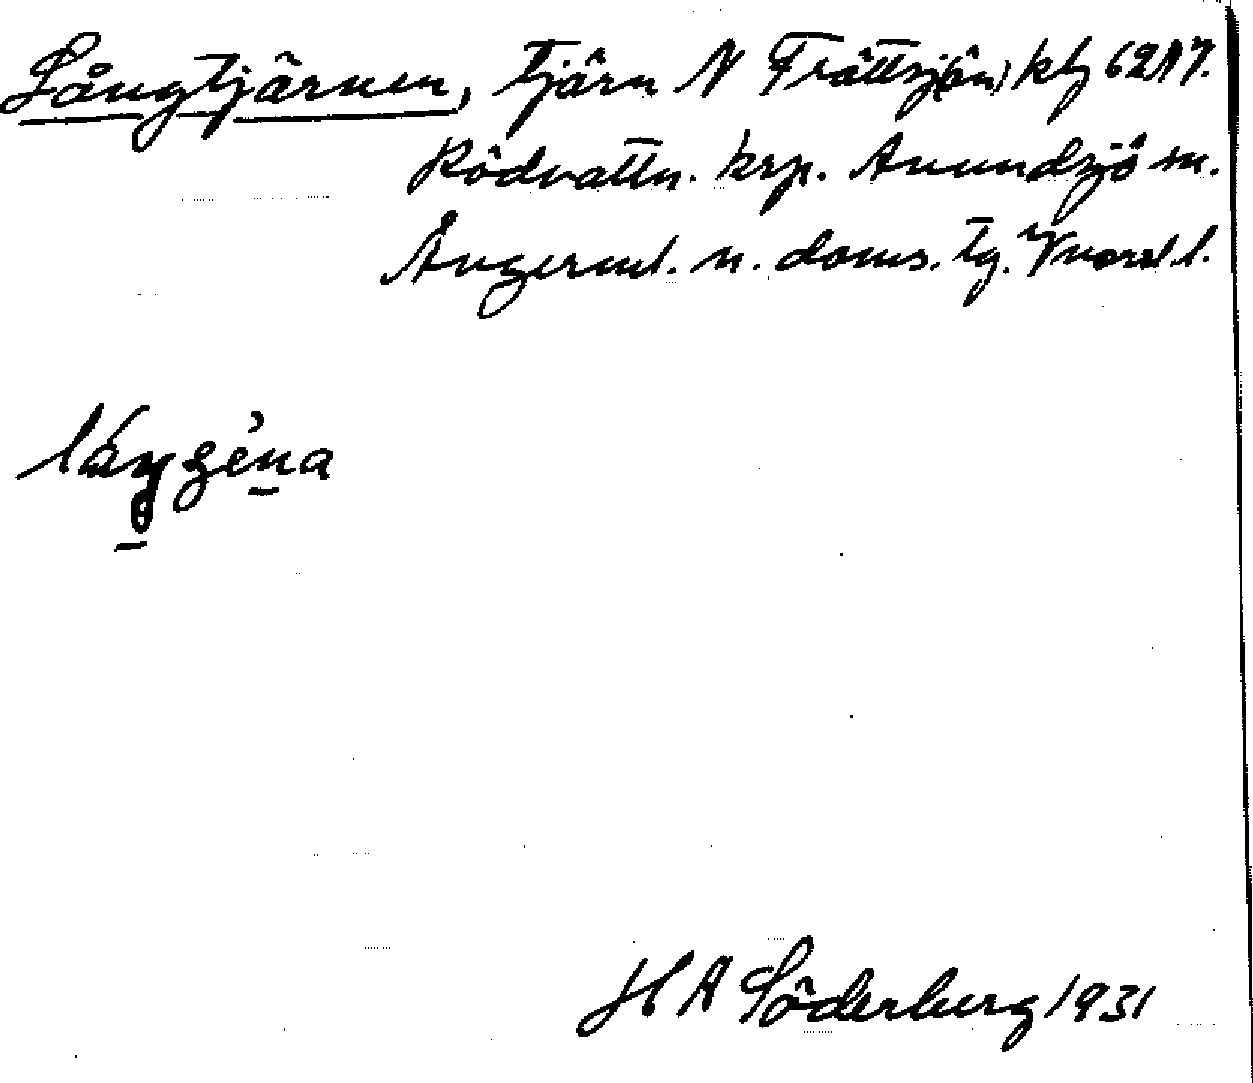 Långtjärnen, tjärn N Trättsjön, kbl 62A7.
Rödvattn. krp. Anundsjö sn.
Ångerml. n. doms. tg.
H A Söderberg 1931